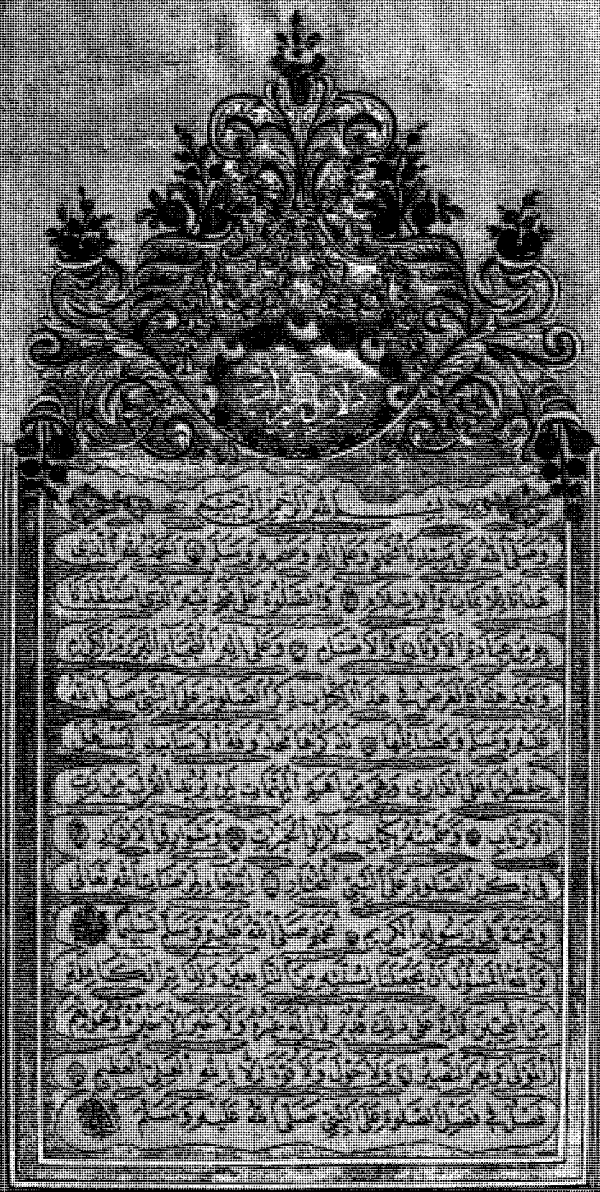 دلائل الخيرات
بسم الله الرحمن الرحيم
وصلى الله على سيدنا محمد وعلى اله وصحبه وسلم الحمد لله الذى
هدانا للايمان والاسلام والصلوة على محمد نبيه الذى استنقذنا
به من عبادة الاوثان والاصنام وعلى اله النجباء البررة الكرام
وبعد هذا فالغرض فى هذا الكتاب ذكر الصلوة على النبى صلى الله
عليه وسلم وفضائلها نذكرها محذوفة الاسانيد ليسهل
حفظها على القارئ وهى من اهم المهمات لمن يريد القرب من رب
الارباب وسميته بكتاب دلائل الخيرات وشوارق الانوار
فى ذكر الصلوة على النبى المختار ابتغاء لمرضات الله تعالى
ومحبة فى رسوله الكريم محمد صلى الله عليه وسلم تسليما
والله المسئول ان يجعلنا لسنته من التابعين ولذاته الكاملة
من المحبين فانه على ذلك قدير لا اله غيره ولا خير الا خيره وهو نعم
المولى ونعم النصير ولا حول ولا قوة الا بالله العلى العظيم
فصل فى فضل الصلوة على النبى صلى الله عليه وسلم